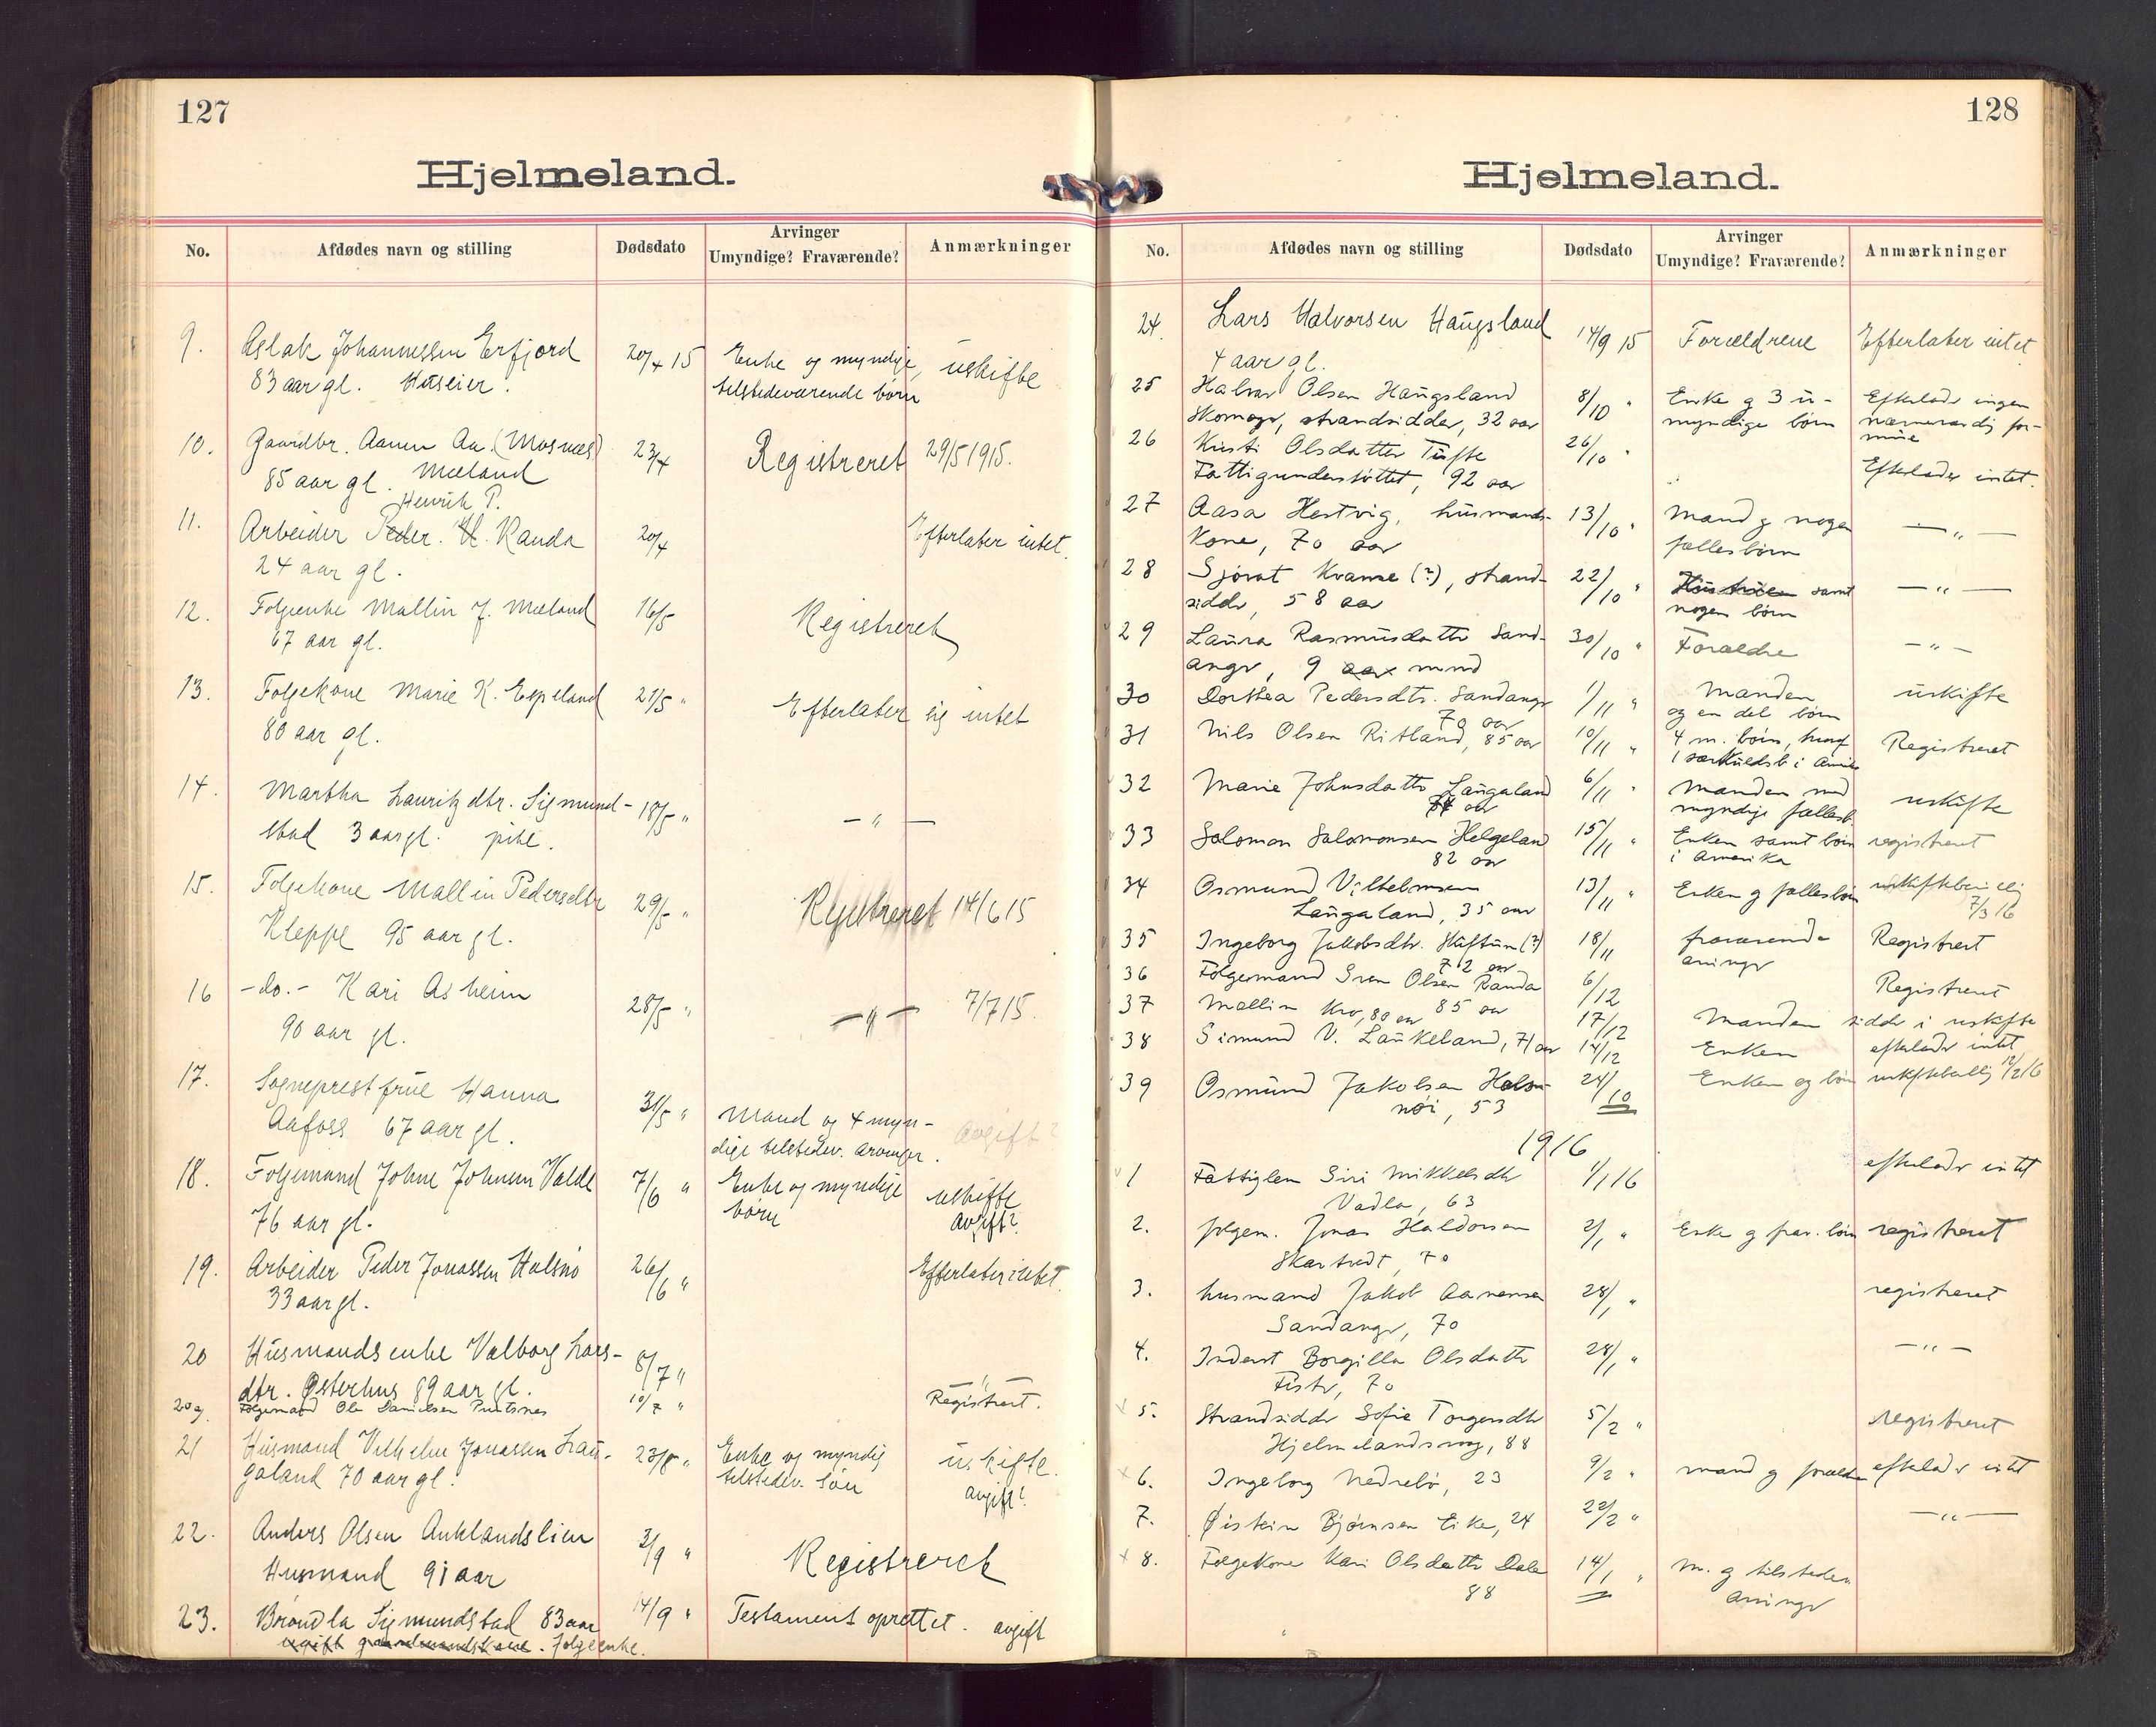 127
Hjelmeland.
No.
Afdødes navn og stilling
Dødsdato
Arvinger
Umyndige? Fraværende?
Anmærkninger
9. Aslak Johannessen Erfjord 20/4 15 Enke og myndige, uskifte
83 aar gl. Huseier. tilstedeværende børn
10. Gaardbr. Aanen Aa. (Mosnes) 23/4 Registreret 29/5 1915.
85 aar gl. Mæland
Henrik P.
11. Arbeider Peder. H. Randa 20/4 Efterlater intet.
24 aar gl.
12. Folgeenke Mallin J. Mæland 16/5 Registreret
67 aar gl.
13. Folgekone Marie K. Espeland 21/5 " Efterlater sig intet
80 aar gl.
14. Martha Lauritzdtr. Sigmund- 18/5 " — " —
stad 3 aar gl. pike.
15. Folgekone Mallin Pedersdtr 29/5 " Registreret 14/6 15
Kleppe 95 aar gl.
16 -do.- Kari Asheim 28/5 " — " — 7/7 15.
90 aar gl.
17. Sogneprestfrue Hanna 31/5 " Mand og 4 myn- Avgift?
Aafoss 67 aar gl. dige tilstedev. arvinger.
18. Folgemand Johne Johnsen Valde 7/6 " Enke og myndige uskifte
76 aar gl. børn Avgift?
19. Arbeider Peder Jonassen Halsnø 26/6 " Efterlater intet
33 aar gl.
20 Husmandsenke Valborg Lars- 8/7 " — " —
dtr. Østerhus 89 aar gl.
20a. Folgemand Ole Danielsen Puntsnes 10/7 " Registrert.
21 Husmand Vilhelm Jonassen Lau- 23/8 " Enke og myndig uskifte.
galand 70 aar gl. tilstedev. søn avgift?
22. Anders Olsen Auklandslien 3/9 " Registreret
Husmand 91 aar
23. Brøndla Sigmundstad 83 aar 14/9 " Testament oprettet. avgift
ugift gaardmandskone. Folgeenke.
128
Hjelmeland.
No.
Afdødes navn og stilling
Dødsdato
Arvinger
Umyndige? Fraværende?
Anmærkninger
24. Lars Halvorsen Haugsland 14/9 15 Forældrene Efterlater intet
4 aar gl.
25 Halvar Olsen Haugsland 8/10 " Enke g 3 u- Efterlader ingen
Skomager, strandsidder, 32 aar myndige børn nævneværdig for-
mue
26 Kirsti Olsdatter Tufte 26/10 "
Fattigunderstøttet, 92 aar Efterlader intet.
27 Aasa Hestvig, husmands- 13/10 " Mand g nogen — " —
kone, 70 aar fællesbørn
28 Sjovat Kvame (?), strand- 22/10 " Hustruen samt — " —
sidder, 58 aar nogen børn
29 Laura Rasmusdatter Sand- 30/10 " Forældre — " —
anger, 9 aar mnd
30 Dorthea Pedersdtr. Sandanger 1/11 " Manden uskifte
70 aar og en del børn
31 Nils Olsen Ritland, 85 aar 10/11 " 4 m. børn, hvoraf Registreret
1 særkuldsb i Amrika
32 Marie Johnsdatter Laugaland 6/11 " Manden med uskifte
74 aar myndige fællesb.
33 Salomon Salomonsen Helgeland 15/11 " Enken samt børn registreret
82 aar i Amerika
34 Osmund Vilhelmsen 13/11 " Enken g fællesbørn uskiftebevilg
Laugaland, 35 aar 7/3 16
35 Ingeborg Jakobsdtr. Huftun (?) 18/11 fraværende Registrert
72 aar arvinger
36 Folgemand Sven Olsen Randa 6/12 Registreret
85 aar
37 Mallin Kro, 80 aar 17/12 Manden sidder i uskifte
38 Simund V. Laukeland, 71 aar 14/12 Enken efterlader intet
39 Osmund Jakobsen Hals- 24/10 Enken og børn uskiftebevilg 12/2 16
nøi, 53
1916
1 Fattiglem Siri Mikkelsdtr 1/1 16 efterlader intet
Vadla, 63
2. folgem. Jonas Haldorsen 2/1 " Enke g frav. børn registreret
Skartredt, 70
3. husmand Jakob Aanensen 28/1 " registreret
Sandanger, 70
4. Inderst Borgilla Olsdatter 28/1 " — " —
Fister, 70
5. Strandsidder Sofie Torgersdtr 5/2 " registreret
Hjelmelandsvaag, 88
6. Ingeborg Nedrebø, 23 9/2 " mand g forældre efterlader intet
7. Øistein Bjørnsen Eike, 24 22/2 " — " —
8. Folgekone Kari Olsdatter Dale 14/1 " m. g tilsteden
88 arvinger